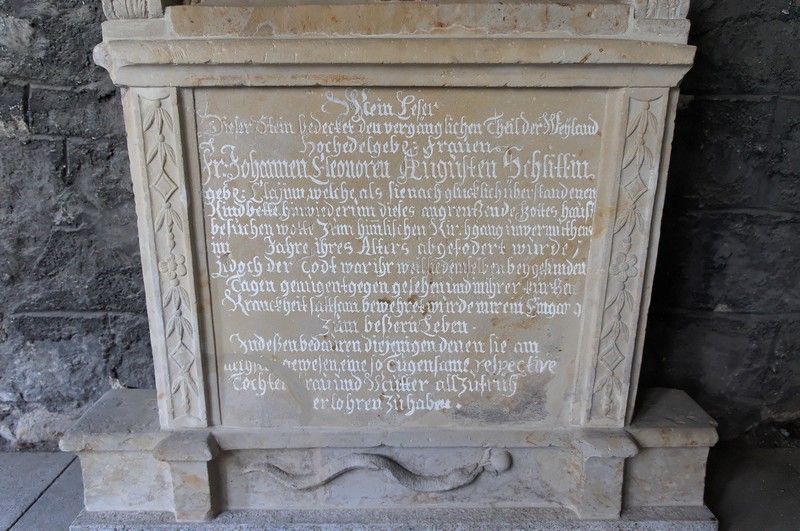 Mein Leser
Dieser Stein bedecket den vergänglichen Theil der Weyland
Hochedelgeb: Frauen
Fr. Johannen Eleonoren Augusten Schlittin
geb: welche, als sie nach glücklich überstandenen
Kindbette hinwiederum dieses angrentzende Gottes hauß
besuchen wolte zum himlischen Kirchgang unvermuthens
im Jahre ihres Alters abgefodert wurde
jedoch der Todt war ihr
Tagen genug entgegen gesehen und in ihrer kurtzen
Kranckheit sattsam bewehret wurde nur ein Eingang
zum beßern Leben.
Indeßen bedauren diejenigen denen sie am
gewesen, eine so Tugensame, respective
Tochter Frau und Mutter allzufrüh
erlohren zu haben.